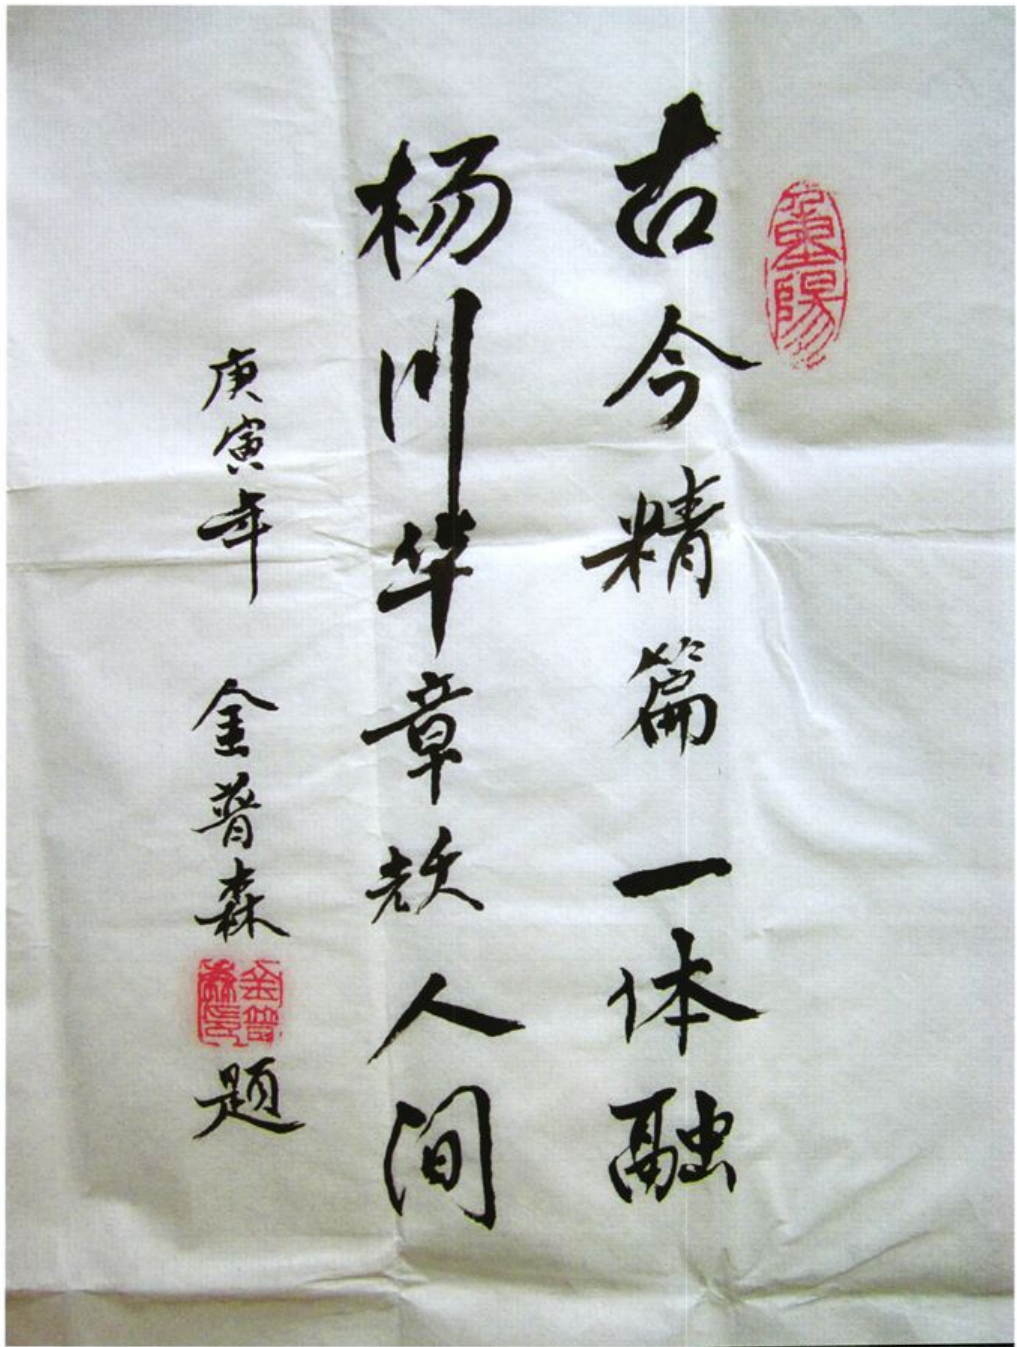 古今精篇一体融
杨川华章颂人间
庚寅年 金普森 题